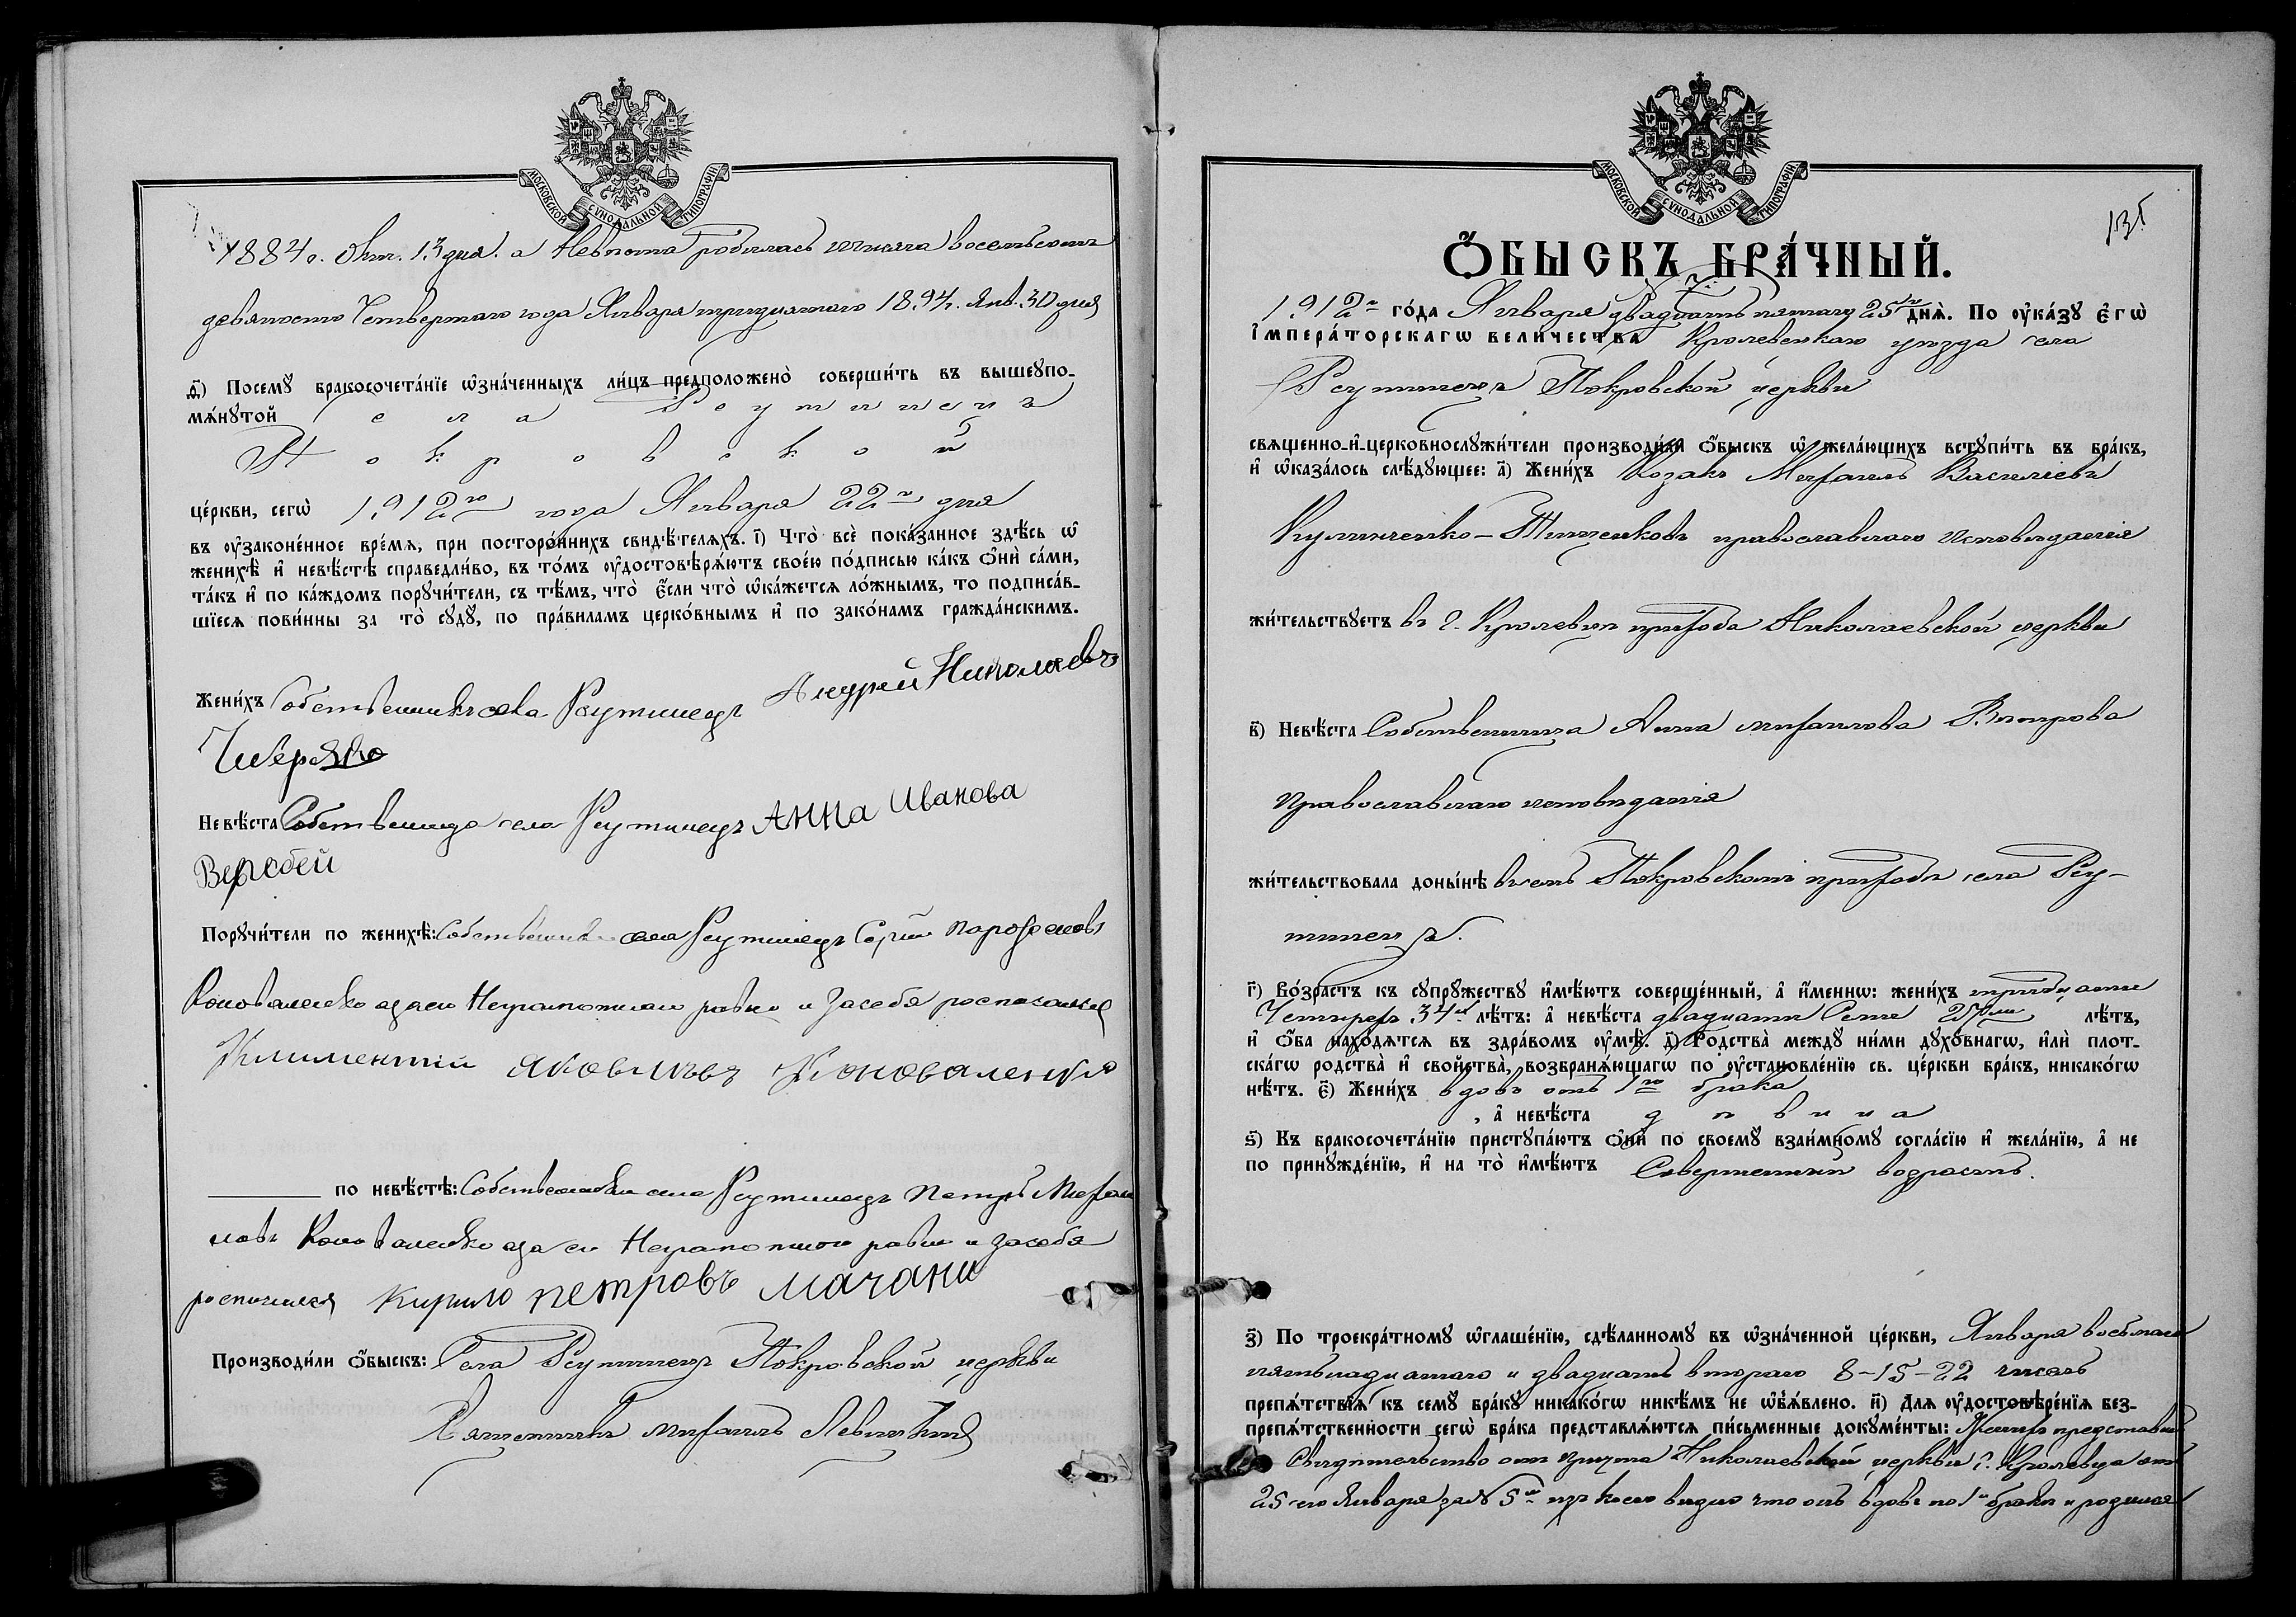 МОСКОВСКОЙ СУНОДАЛЬНОЙ ТИПОГРАФІИ.
1884 г. Окт. 13 дня. а Невѣста родилась тысяча восемьсотъ
девяносто Четвертаго года Января тридцатаго 1894 г. Янв. 30 дня
Посемꙋ бракосочета́нїе ѡ҆зна́ченныхъ ли́цъ предположено̀ соверши́ть въ вышеꙋпо-
мѧ́нꙋтой села Реутинецъ
Покровской
це́ркви, сегѡ̀ 1912го года Января 22го дня
въ ᲂу҆законе́нное вре́мѧ, при посторо́ннихъ свидѣ́телѧхъ. і҃) Что̀ всѐ пока́занное здѣ́сь ѡ҆
женихѣ̀ и҆ невѣ́стѣ справедли́во, въ то́мъ ᲂу҆достовѣрѧ́ютъ свое́ю по́дписью ка́къ ѻ҆нѝ са́ми,
та́къ и҆ по ка́ждомъ порꙋчи́тели, съ тѣ́мъ, что̀ є҆́сли что̀ ѡ҆ка́жетсѧ ло́жнымъ, то подписа́в-
шїесѧ пови́нны за то̀ сꙋдꙋ̀, по пра́виламъ церко́внымъ и҆ по зако́намъ гражда́нскимъ.
Жени́хъ Собственникъ села Реутинецъ Андрей Николаевъ
Чиберяко
Невѣ́ста Собственница села Реутинецъ Анна Иванова
Порꙋчи́тели по женихѣ̀: Собственникъ села Реутинецъ
Коноваленко а за его Неграмотнаго равно и за себя росписался
Климентій Яковлевъ Коноваленко
по невѣ́стѣ: Собственникъ села Реутинецъ Петръ Михаи
ловъ Коноваленко а за его Неграмотнаго равно и за себя
росписался Кирило Петровъ Мачани
Производи́ли ѻ҆́быскъ: Села Реутинецъ Покровской церкви
Священникъ Михаилъ Левицкій
МОСКОВСКОЙ СУНОДАЛЬНОЙ ТИПОГРАФІИ.
131
Ѻ҆́БЫСКЪ БРА́ЧНЫЙ.
7.
1912го го́да Января двадцать пятаго 25го днѧ̀. По ᲂу҆ка́зꙋ є҆гѡ̀
і҆мпера́торскагѡ вели́чества Кролевецкаго уѣзда села
Реутинецъ Покровской церкви
свѧщенно-и҆-церковнослꙋжи́тели производи́ли ѻ҆́быскъ ѡ҆ жела́ющихъ встꙋпи́ть въ бра́къ,
и҆ ѡ҆каза́лось слѣ́дꙋющее: а҃) Жени́хъ Козакъ Михаилъ Василіевъ
православнаго исповѣданія
жи́тельствꙋетъ въ г. Кролевцѣ прихода Николаевской церкви
в҃) Невѣ́ста Собственница Анна Михаилова Вѣтрова
православнаго исповѣданія
жи́тельствовала донынѣ въ семъ Покровскомъ приходѣ села Реу-
тинецъ.
г҃) Во́зрастъ къ сꙋпрꙋ́жествꙋ и҆мѣ́ютъ соверше́нный, а҆ и҆́менно: жени́хъ тридцати
Четырехъ 34хъ лѣ́тъ: а҆ невѣ́ста двадцати Семи 27ми лѣ́тъ,
и҆ ѻ҆́ба нахо́дѧтсѧ въ здра́вомъ ᲂу҆мѣ̀. д҃) Родства̀ междꙋ ни́ми дꙋхо́внагѡ, и҆лѝ плот-
ска́гѡ родства̀ и҆ сво́йства, возбранѧ́ющагѡ по ᲂу҆становле́нїю св. це́ркви бра́къ, никако́гѡ
нѣ́тъ. є҃) Жени́хъ вдовъ отъ 1го брака
, а҆ невѣ́ста дѣвица
ѕ҃) Къ бракосочета́нїю пристꙋпа́ютъ ѻ҆нѝ по своемꙋ̀ взаи́мномꙋ согла́сїю и҆ жела́нїю, а҆ не
по принꙋжде́нїю, и҆ на то̀ и҆мѣ́ютъ Совершенный возрастъ.
з҃) По троекра́тномꙋ ѡ҆глаше́нїю, сдѣ́ланномꙋ въ ѡ҆зна́ченной це́ркви, Января восьмаго
пятьнадцатаго и двадцать втораго 8-15-22 чиселъ
препѧ́тствїѧ къ семꙋ̀ бра́кꙋ никако́гѡ никѣ́мъ не ѡ҆б̾ѧ́влено. и҃) Длѧ ᲂу҆достовѣре́нїѧ без-
препѧ́тственности сегѡ̀ бра́ка представлѧ́ютсѧ пи́сьменные докꙋме́нты: Женихъ представилъ
Свидѣтельство отъ причта Николаевской церкви г. Кролевца отъ
25 сего Января за № 5м изъ коего видно что онъ вдовъ по 1м бракѣ и родился